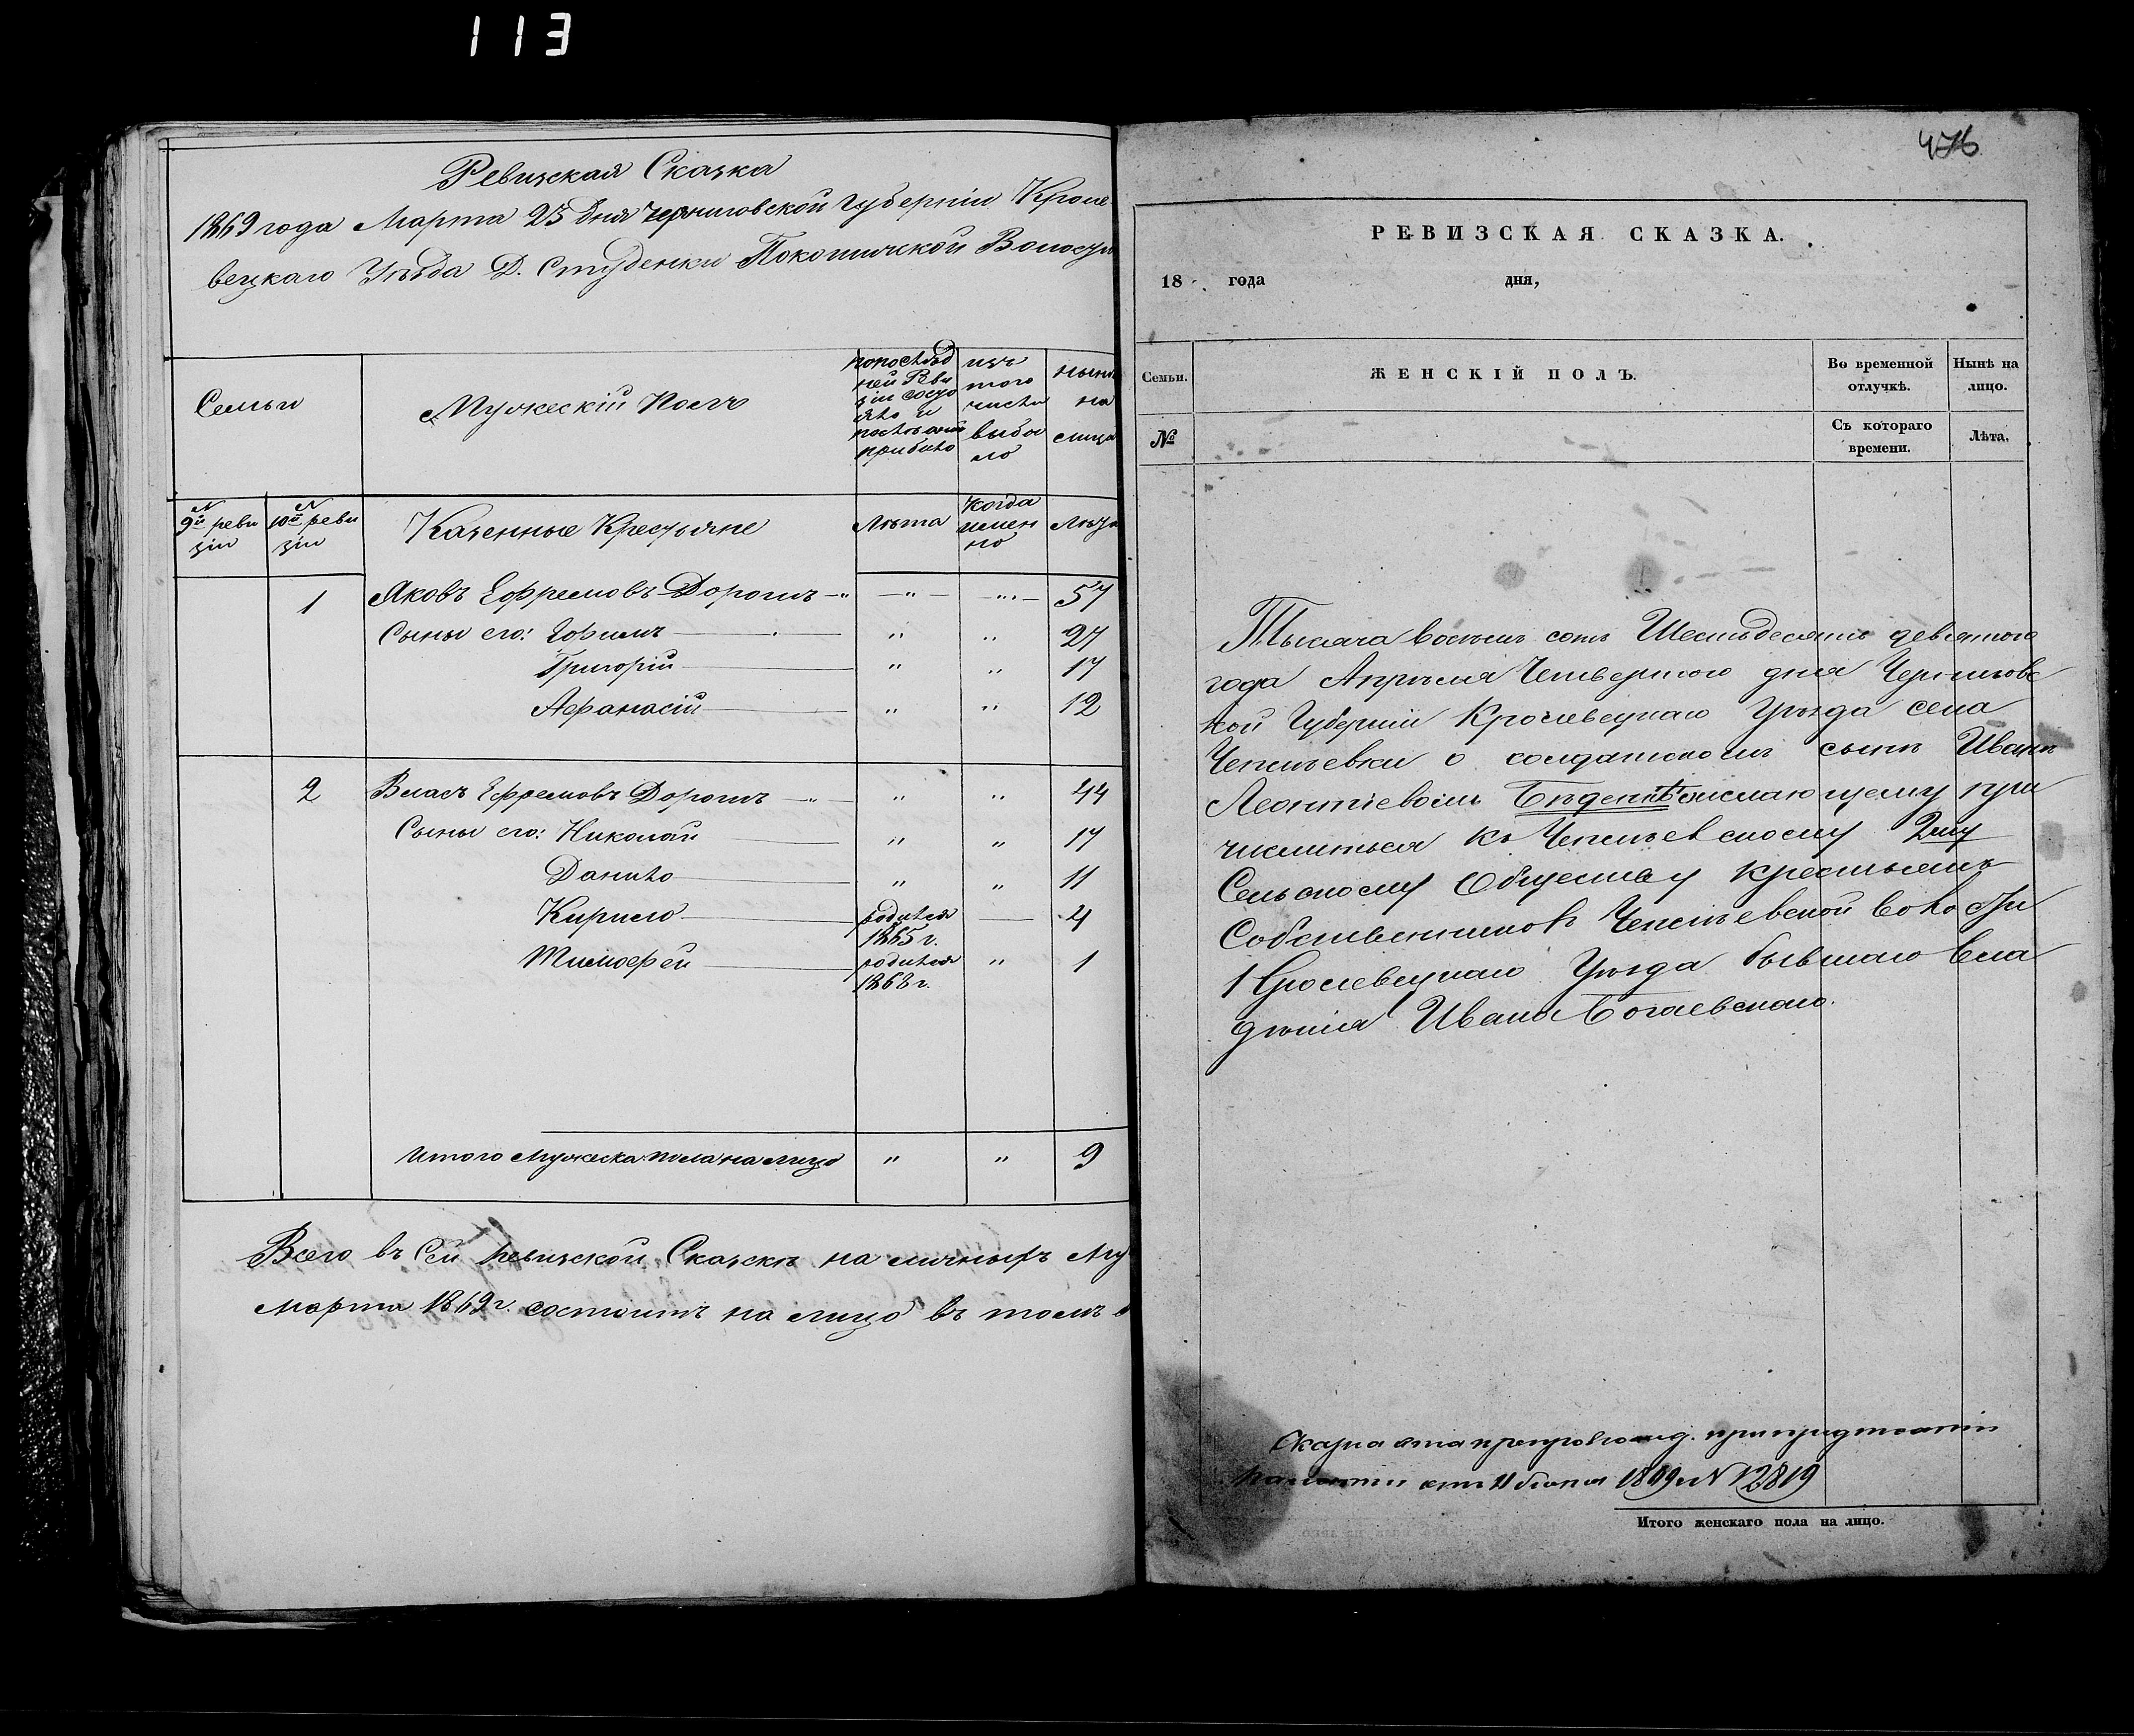 113
Ревизская Сказка
1869 года Марта 25 дня Черниговской Губерніи Кроле
вецкаго Уѣзда Д. Студенки Покошичской Волости
Семьи
Мужескій полъ
попослѣд
ней Реви
зіи состо
яло и
послѣ оной
прибыло
изъ
того
числа
выбы
ло
нынѣ
на
лицо
N
9й реви
зіи
N
10й реви
зіи
Казенные Крестьяне
Лѣта
Когда
имен
но
Лѣта
1 Яковъ Ефремовъ Дорошъ —"— —"— 57
Сыны его: Ефимъ " " 27
Григорій " " 17
Афанасій " " 12
2 Власъ Ефремовъ Дорошъ " " 44
Сыны его: Николай " " 17
Данило " " 11
Кирило родился 1865 г. — 4
Тимофей родился 1868 г. " 1
Итого Мужеска пола на лицо " " 9
Всего въ Сей Ревизской Сказкѣ на личныхъ Му
Марта 1869 г. состоитъ на лицо въ томъ
476
РЕВИЗСКАЯ СКАЗКА.
18 года дня,
Семьи.
ЖЕНСКІЙ ПОЛЪ.
Во временной
отлучкѣ.
Нынѣ на
лицо.
№
Съ котораго
времени.
Лѣта.
Тысяча восемь сотъ Шестьдесятъ девятого
года Апрѣля Четвертого дня Черниговс
кой Губерніи Кролевецкаго Уѣзда села
о солдатскомъ сынѣ Иванѣ
Леонтіевомъ желающему при
числиться къ 2му
Сельскому Обществу крестьянъ
Собственниковъ волости
Кролевецкаго Уѣзда бывшаго вла
дѣнія Ивана Богаевскаго.
Сказка эта препровожд. при предписаніи
Палаты отъ 1869 г N 12819
Итого женскаго пола на лицо.